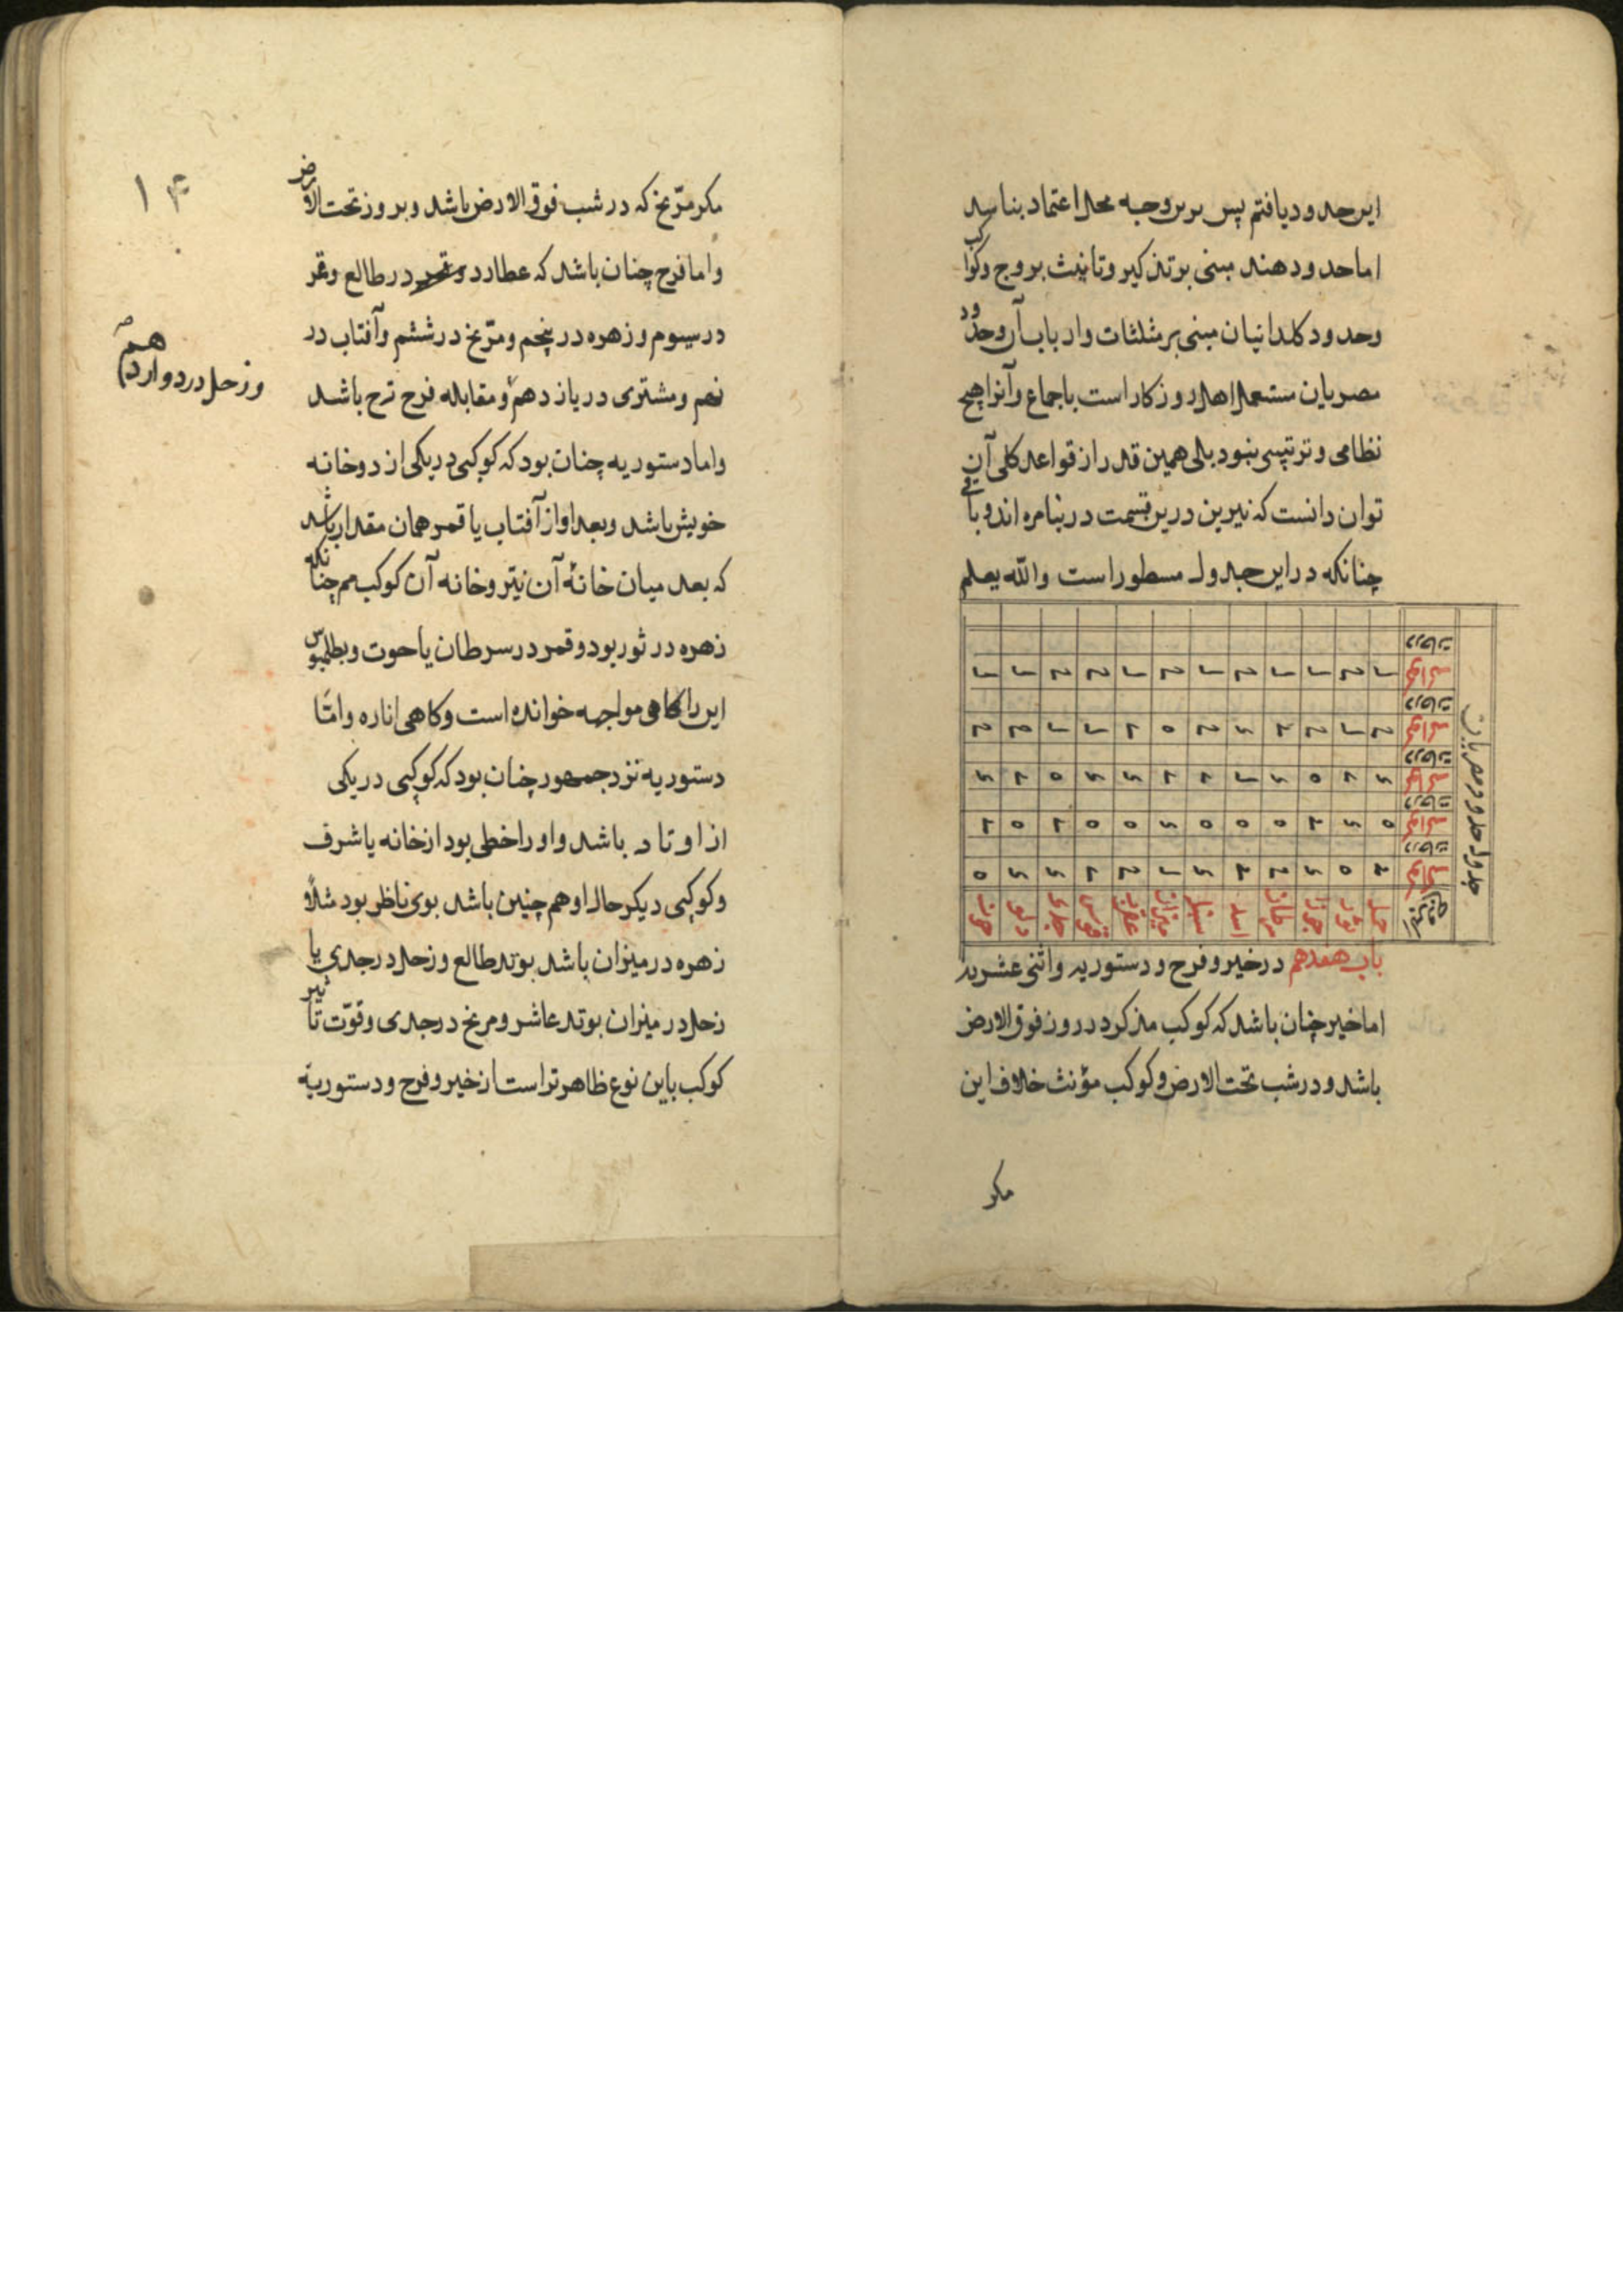 این حدود یافتم پس برین وجه محل اعتماد بناشد
اما حدود هند مبنی بر تذکیر و تانیث بروج و کواکب
و حدود کلدانیان مبنی بر مثلثات و ارباب آن و حدود
مصریان مستعمل اهل روزکار است باجماع و آنرا هیچ
نظامی و ترتیبی نبود بلی همین قدر از قواعد کلی آن
توان دانست که نیرین درین قسمت در نیامده اند و باقی
چنانکه در این جدول مسطور است والله یعلم
جدول حدود مصریان
حمل ثور جوزا سرطان اسد سنبله میزان عقرب قوس جدی دلو حوت
باب هفدهم در خیر و فرح و دستوریه و اثنی عشریه
اما خیر چنان باشد که کوکب مذکر در روز فوق الارض
باشد و در شب تحت الارض و کوکب مؤنث خلاف این
مکر
۱۴
مکر مرّیخ که در شب فوق الارض باشد و بروز تحت الارض
و اما فرح چنان باشد که عطارد در طالع و قمر
در سیوم و زهره در پنجم و مرّیخ در ششم و آفتاب در
نهم و مشتری در یازدهم و مقابله فرح ترح باشد
و زحل در دوازدهم
و اما دستوریه چنان بود که کوکبی در یکی از دو خانه
خویش باشد و بعد او از آفتاب یا قمر همان مقدار باشد
که بعد میان خانهٔ آن نیّر و خانه آن کوکب هم چنانکه
زهره در ثور بود و قمر در سرطان یا حوت و بطلمیوس
این را کاهی مواجهه خوانده است و کاهی اناره و امّا
دستوریه نزد جمهور چنان بود که کوکبی در یکی
از اوتاد باشد و او را خطی بود از خانه یا شرف
و کوکبی دیکر حال او هم چنین باشد بوی ناظر بود مثلاً و
زهره در میزان باشد بوتد طالع و زحل در جدی یا
زحل در میزان بوتد عاشر و مریخ در جدی و قوّت تأثیر
کوکب باین نوع ظاهرتر است از خیر و فرح و دستوریة